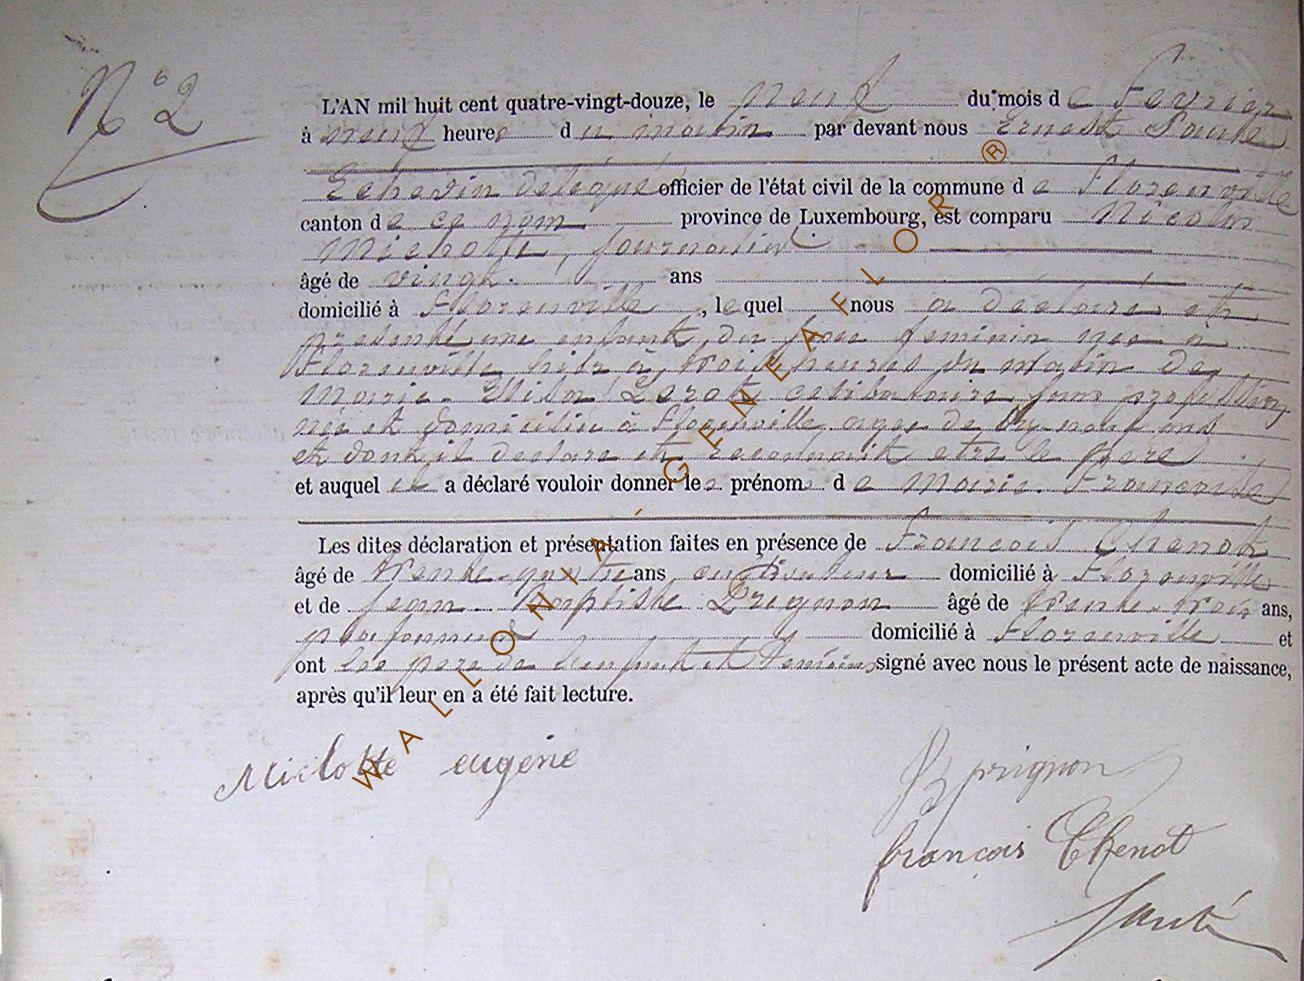 N° 2
L'AN mil huit cent quatre-vingt-douze, le neuf du mois de Fevrier
à neuf heures du matin par devant nous Ernest
Echevin délégué officier de l'état civil de la commune de Florenville
canton de ce nom province de Luxembourg, est comparu Nicolas
journalier
âgé de vingt ans
domicilié à Florenville, lequel nous a déclaré et
presenté une enfant du feminin née à
Florenville hier à trois heures du matin de
Marie Elisa célibataire sans profession
née et domiciliée à Florenville agée de neuf ans
et dont il declare et reconnait etre le pere
et auquel il a déclaré vouloir donner les prénoms de Marie Françoise
Les dites déclaration et présentation faites en présence de François Chenot
âgé de trente-quatre ans cultivateur domicilié à Florenville
et de Jean Baptiste Prignon âgé de trente-trois ans,
domicilié à Florenville et
ont les pere de l'enfant et temoins signé avec nous le présent acte de naissance,
après qu'il leur en a été fait lecture.
Miclotte eugène
JB prignon
françois Chenot
WALLONIA - GENEAFLOR ®